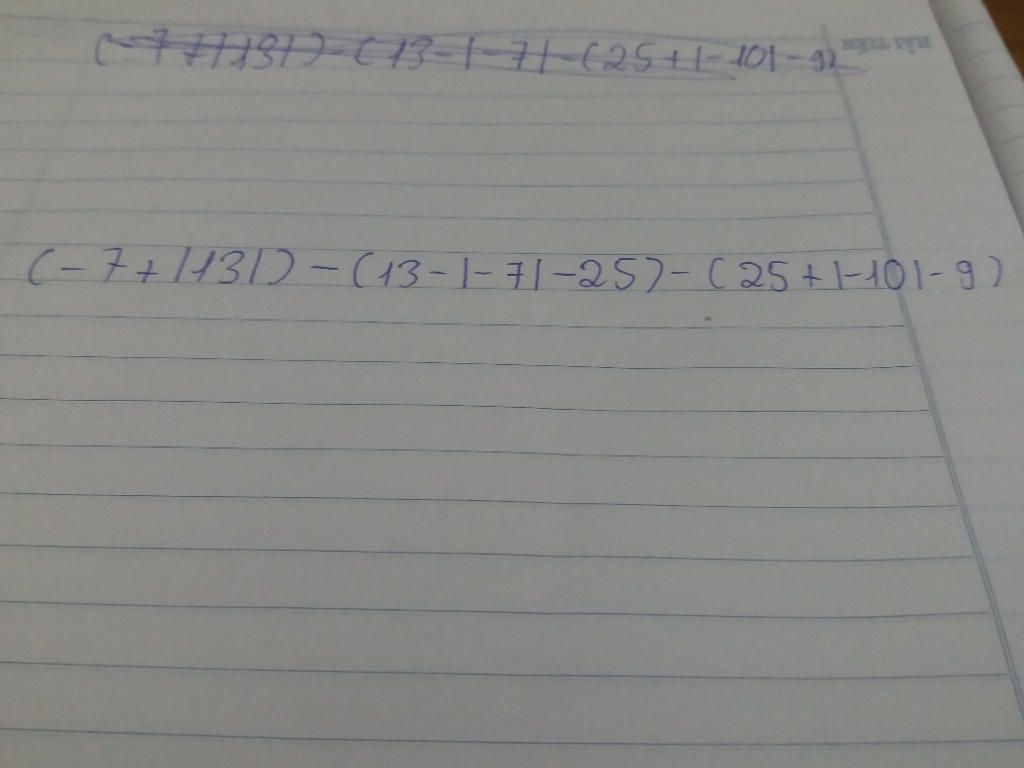 (-7+|13|)-(13-|-7|-(25+|-10|-9)
(-7+|13|)-(13-|-7|-25)-(25+|-10|-9)